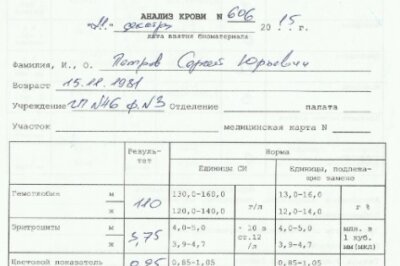 АНАЛИЗ КРОВИ N 606
"11" декабря 2015 г.
дата взятия биоматериала
Фамилия, И., О. Петров Сергей Юрьевич
Возраст 15.11.1981
Учреждение ГП №46 ф.№3 Отделение палата
Участок медицинская карта N
Резуль-тат Норма
Единицы СИ Единицы, подлежащие замене
Гемоглобин м 110 130,0-160,0 г/л 13,0-16,0 г %
ж 120,0-140,0 12,0-14,0
Эритроциты м 3,75 4,0-5,0 · 10 в ст.12 /л 4,0-5,0 млн. в 1 куб. мм(мкл)
ж 3,9-4,7 3,9-4,7
Цветовой показатель 0,85 0,85-1,05 0,85-1,05